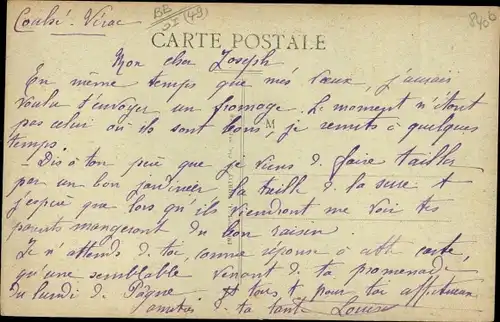 CARTE POSTALE
Mon cher Joseph
En même temps que mes vœux, j'aurais
voulu t'envoyer un fromage. Le moment n'étant
pas celui où ils sont bons, je remets à quelques
temps.
Dis à ton père que je viens de faire tailler
par un bon jardinier la treille de la
j'espère que lors qu'ils viendront me voir tes
parents mangeront du bon raisin.
Je n'attends de toi, comme réponse à cette carte,
qu'une semblable venant de ta promenade
du lundi de Pâque. et pour toi affectueux
de ta tante Louise